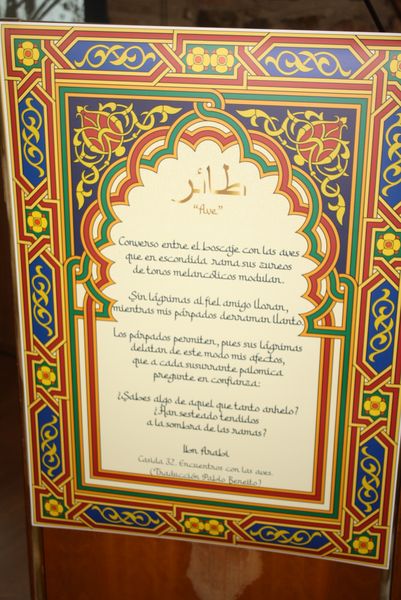 طائر
"Ave"
Converso entre el boscaje con las aves
que en escondida rama sus zureos
de tonos melancólicos modulan.
Sin lágrimas al fiel amigo lloran,
mientras mis párpados derraman llanto.
Los párpados permiten, pues sus lágrimas
delatan de este modo mis afectos,
que a cada susurrante palomica
pregunte en confianza:
¿Sabes algo de aquel que tanto anhelo?
¿Han sesteado tendidos
a la sombra de las ramas?
Ibn Arabí
Casida 32. Encuentros con las aves.
(Traducción Pablo Beneito)